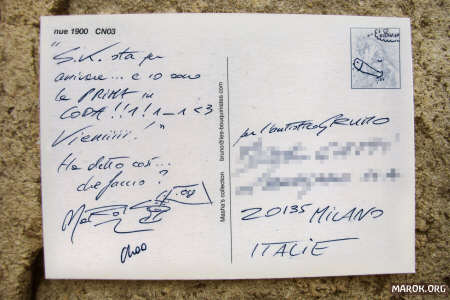 nue 1900 CN03
"S.K. sta per
arrivare... e io sono
la PRIMA in
CODA!!1!1_1 <3
Vieniiii!"
Ha detto così...
che faccio?
ciao
bruno@les-bouquinistes.com
Masha's collection
per l'autistico BRUNO
20135 MILANO
ITALIE
MAROK.ORG